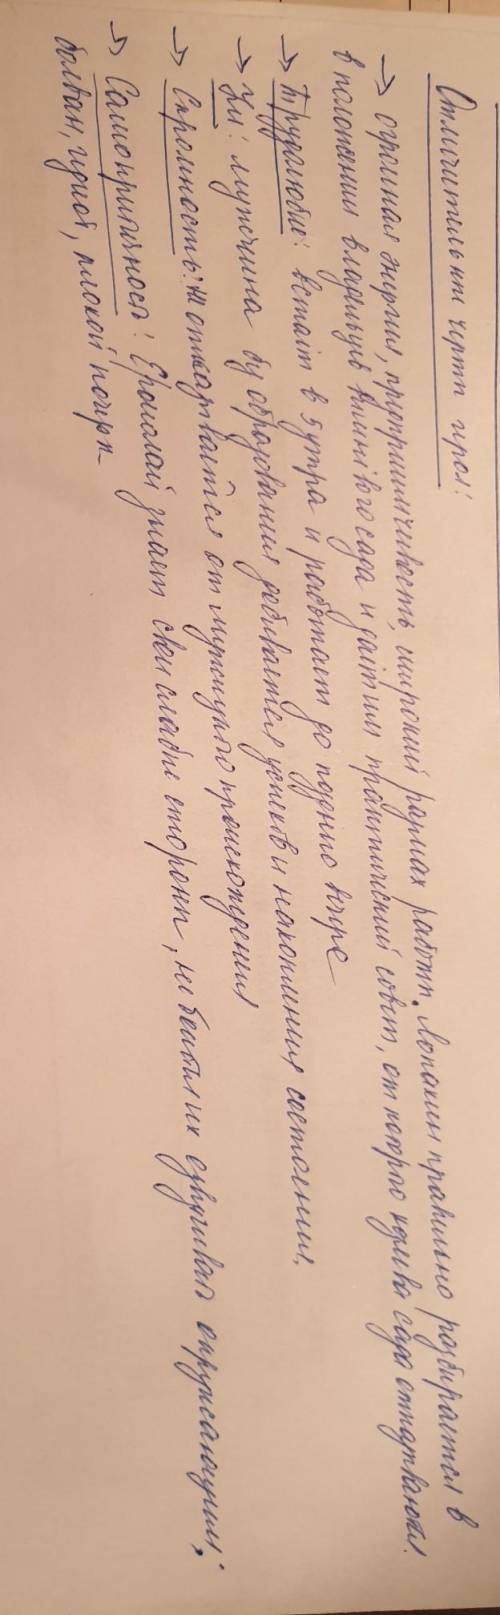 Отличительные черты героя:
→ огромная энергия, предприимчивость, широкий размах работы. Лопахин правильно разбирается в
в положении владельцев вишнёвого сада и даёт им практический совет, от которого хозяева сада отказываются.
→ Трудолюбие: встаёт в 5 утра и работает до поздного вечера
→ Ум: мужчина без образования добивается успехов и накопления состояния.
→ Скромность: не отказывается от мужицкого происхождения
→ Самокритичность: Ермолай знает свои слабые стороны, не боится их озвучивать окружающим;
болван, идиот, плохой почерк